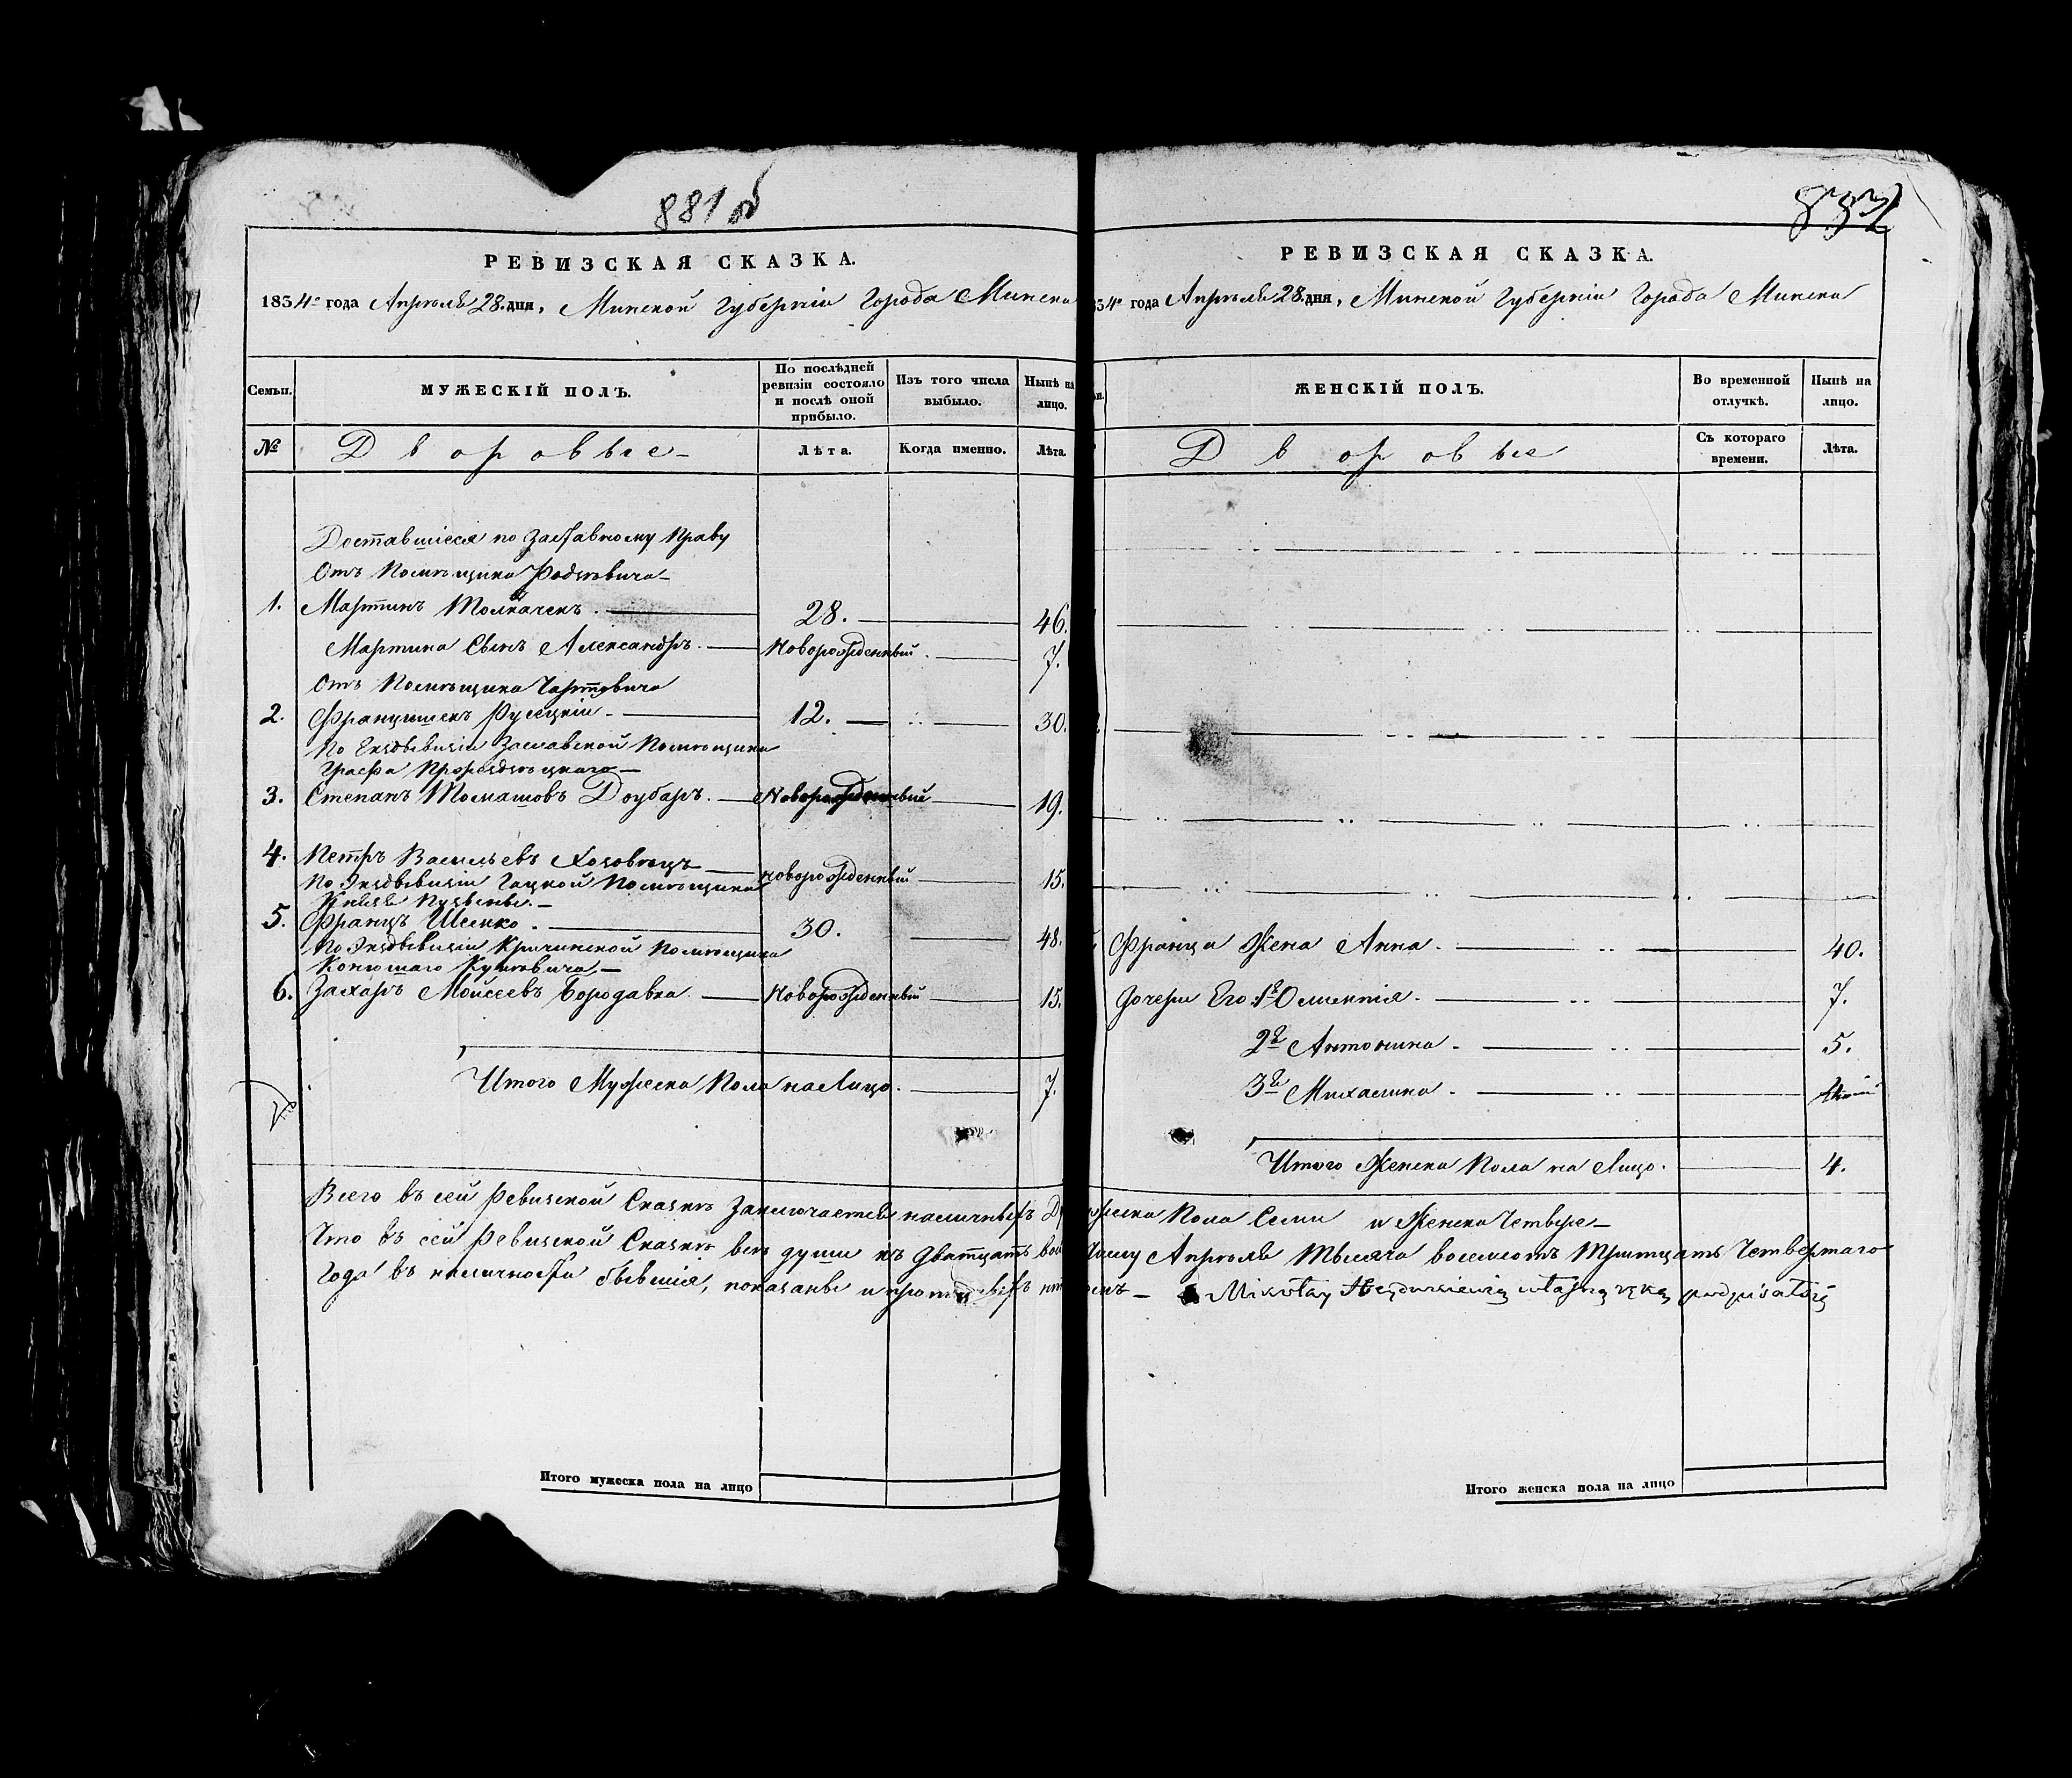 881 об
РЕВИЗСКАЯ СКАЗКА.
1834го года Апрѣля 28. дня, Минской Губерніи Города Минска
Семьи.
МУЖЕСКІЙ ПОЛЪ.
По послѣдней ревизіи состояло и послѣ оной прибыло.
Изъ того числа выбыло.
Нынѣ на лицо.
№
Дворовые
Лѣта.
Когда именно.
Лѣта.
Доставшіеся по Заставному Праву
Отъ Помѣщика
1. Мартинъ Толкачекъ. 28. 46.
Мартина Сынъ Александръ. Новорожденный. 7.
Отъ Помѣщика
2. Францишекъ Русецкій. 12. 30.
По Экздывизіи Заславской Помѣщика
Графа
3. Степанъ Томашовъ Доубаръ. Новорожденный 19.
4. Петръ Васильевъ новорожденный 15.
По Экздывизіи Гацкой Помѣщика
Князя Пузыны.
5. Францъ Исенко. 30. 48.
По Экздывизіи Кричинской Помѣщика
Конюшаго
6. Захаръ Мойсеевъ Бородавка. Новорожденный 15.
Итого Мужеска Пола на Лицо. 7.
Итого мужеска пола на лицо
РЕВИЗСКАЯ СКАЗКА.
34го года Апрѣля 28. дня, Минской Губерніи Города Минска
ЖЕНСКІЙ ПОЛЪ.
Во временной отлучкѣ.
Нынѣ на лицо.
Дворовые
Съ котораго времени.
Лѣта.
Франца Жена Анна. 40.
Дочери Его: 1я 7.
2я Антонина. 5.
3я Михалина.
Итого Женска Пола на Лицо. 4.
Всего въ сей Ревизской Сказкѣ Заключается наличныхъ жеска Пола Семи и Женска Четверо
Что въ сей Ревизской Сказкѣ всѣ души къ двадцать вось мому Апрѣля Тысяча восемсотъ Тритцать Четвертаго
Года въ наличности бывшія, показаны и
Mikołay własną ręką podpisał się
Итого женска пола на лицо